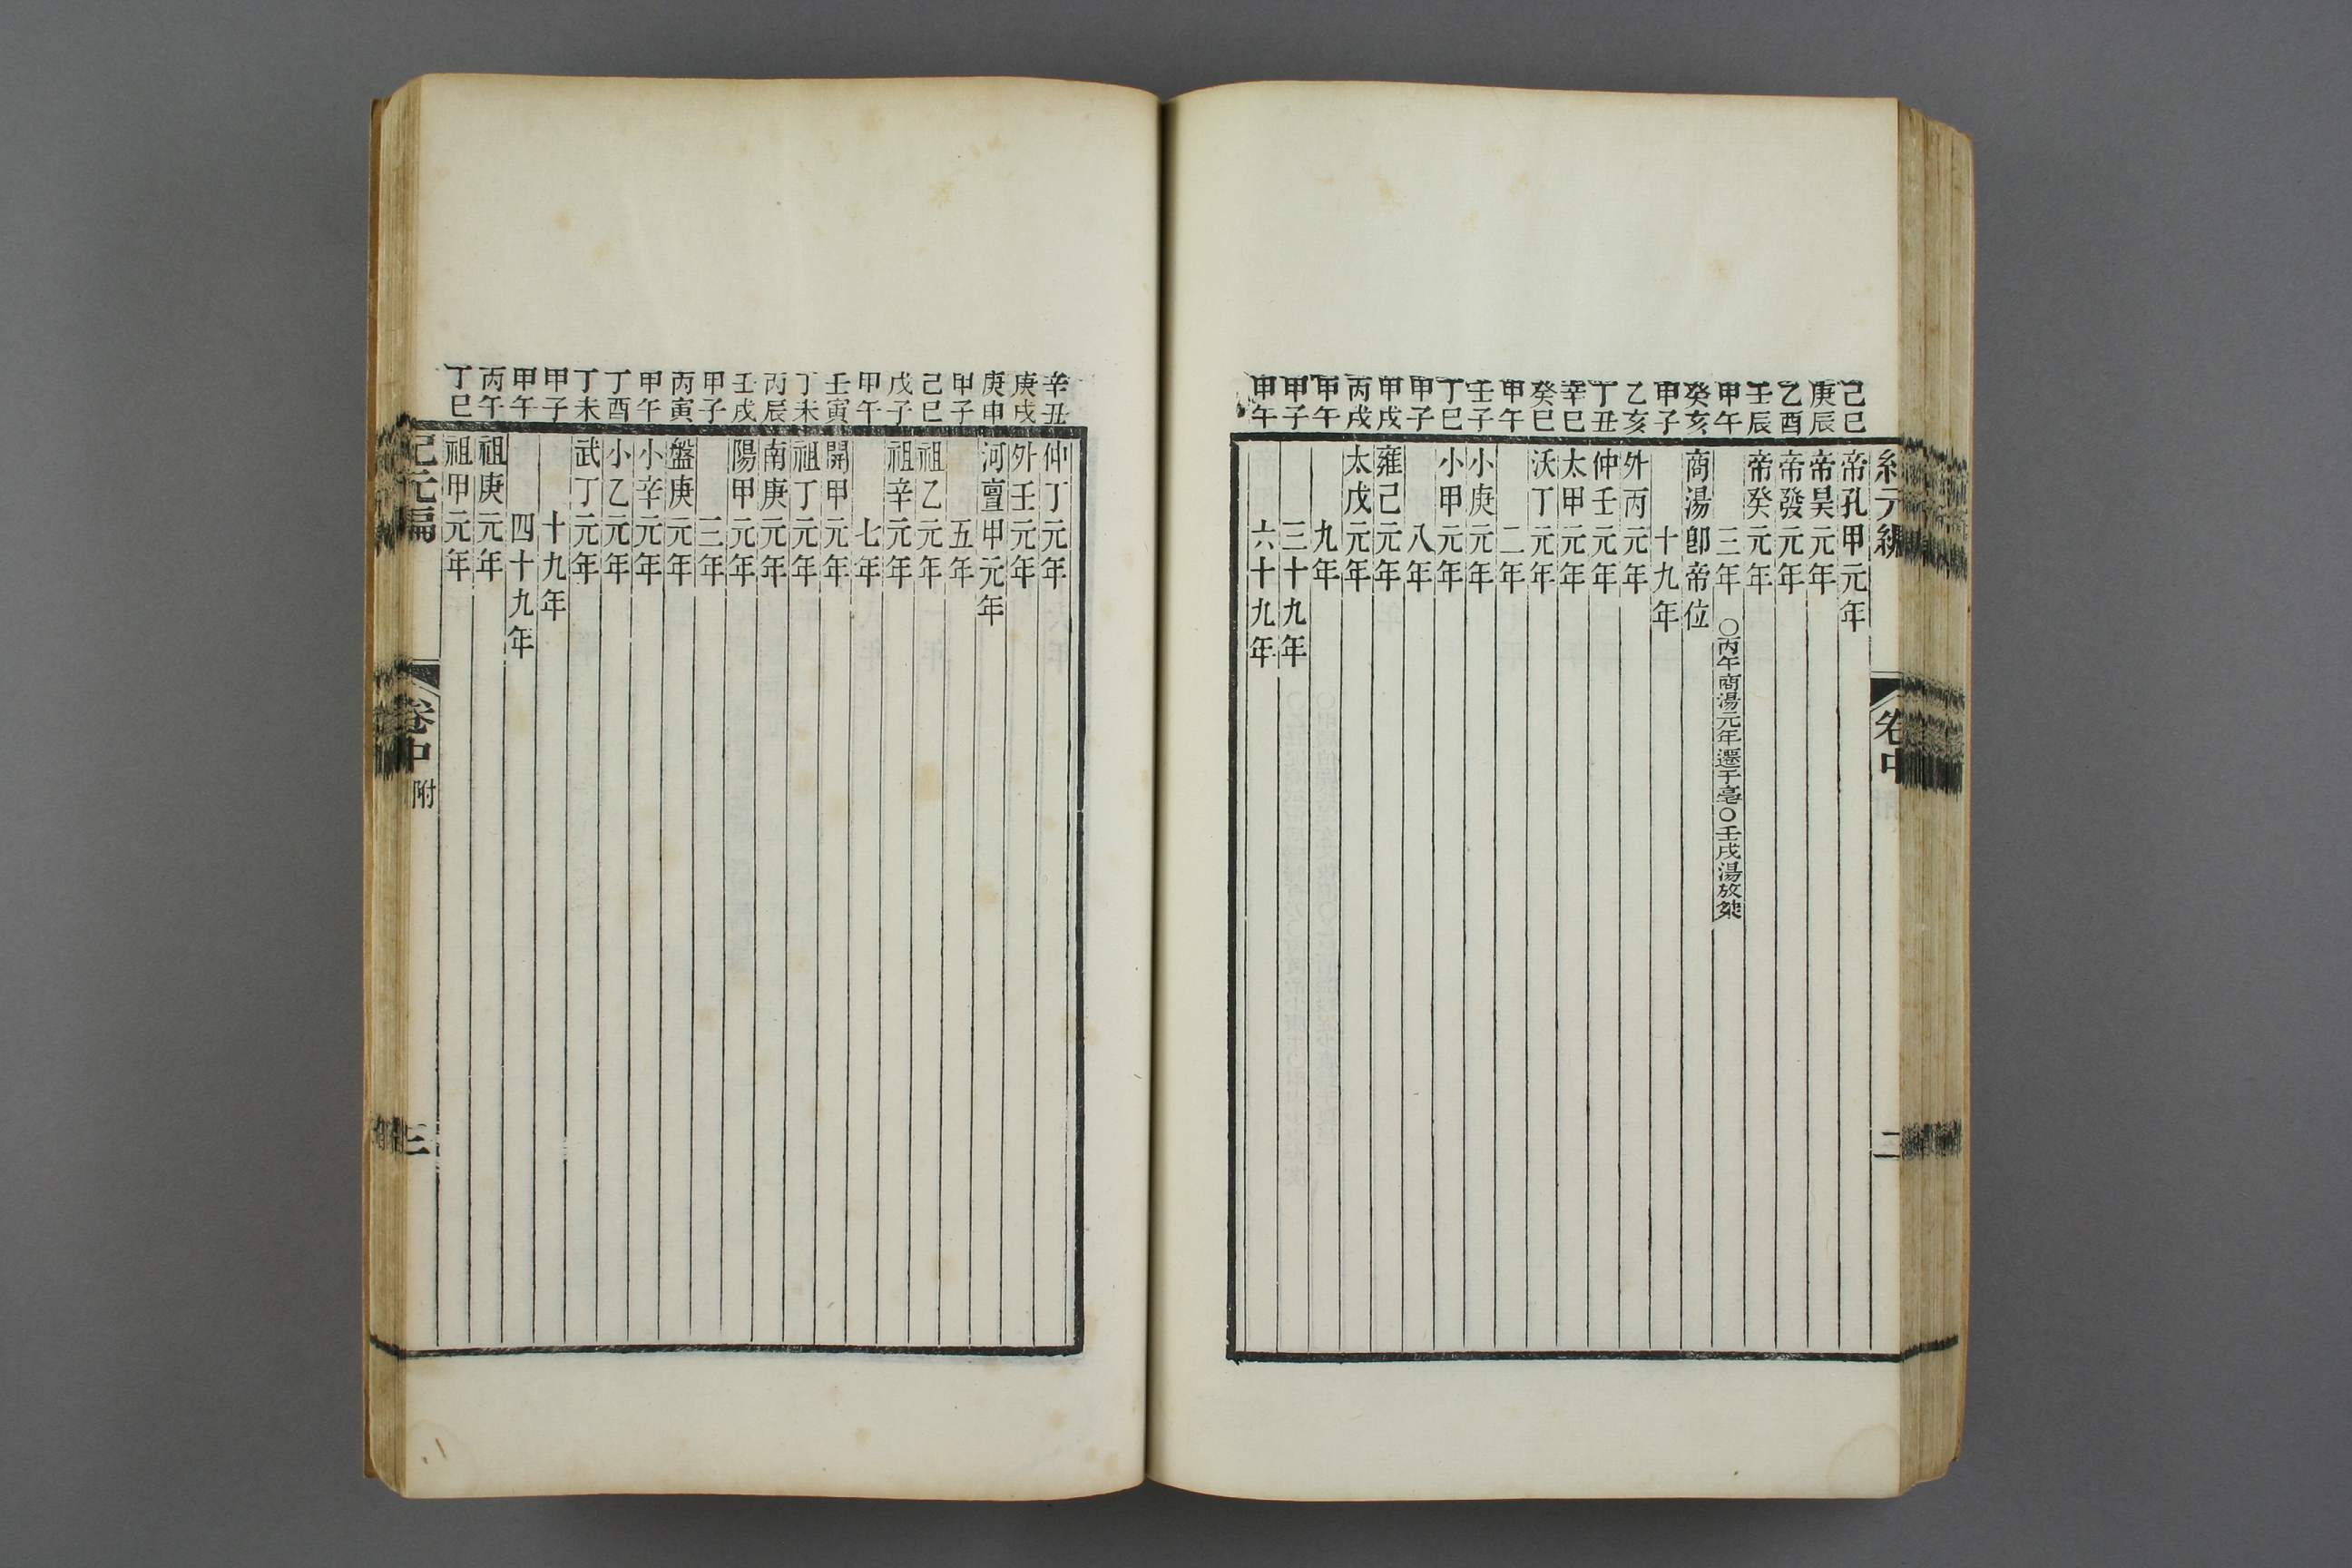 紀元編 卷中 二
己巳 帝孔甲元年
庚辰 帝昊元年
乙酉 帝發元年
壬辰 帝癸元年
甲午 三年 〇丙午商湯元年遷于亳〇壬戌湯放桀
癸亥 商湯卽帝位
甲子 十九年
乙亥 外丙元年
丁丑 仲壬元年
辛巳 太甲元年
癸巳 沃丁元年
甲午 二年
壬子 小庚元年
丁巳 小甲元年
甲子 八年
甲戌 雍己元年
丙戌 太戊元年
甲午 九年
甲子 三十九年
甲午 六十九年
辛丑 仲丁元年
庚戌 外壬元年
庚申 河亶甲元年
甲子 五年
己巳 祖乙元年
戊子 祖辛元年
甲午 七年
壬寅 開甲元年
丁未 祖丁元年
丙辰 南庚元年
壬戌 陽甲元年
甲子 三年
丙寅 盤庚元年
甲午 小辛元年
丁酉 小乙元年
丁未 武丁元年
甲子 十九年
甲午 四十九年
丙午 祖庚元年
丁巳 祖甲元年
紀元編 卷中 附 三